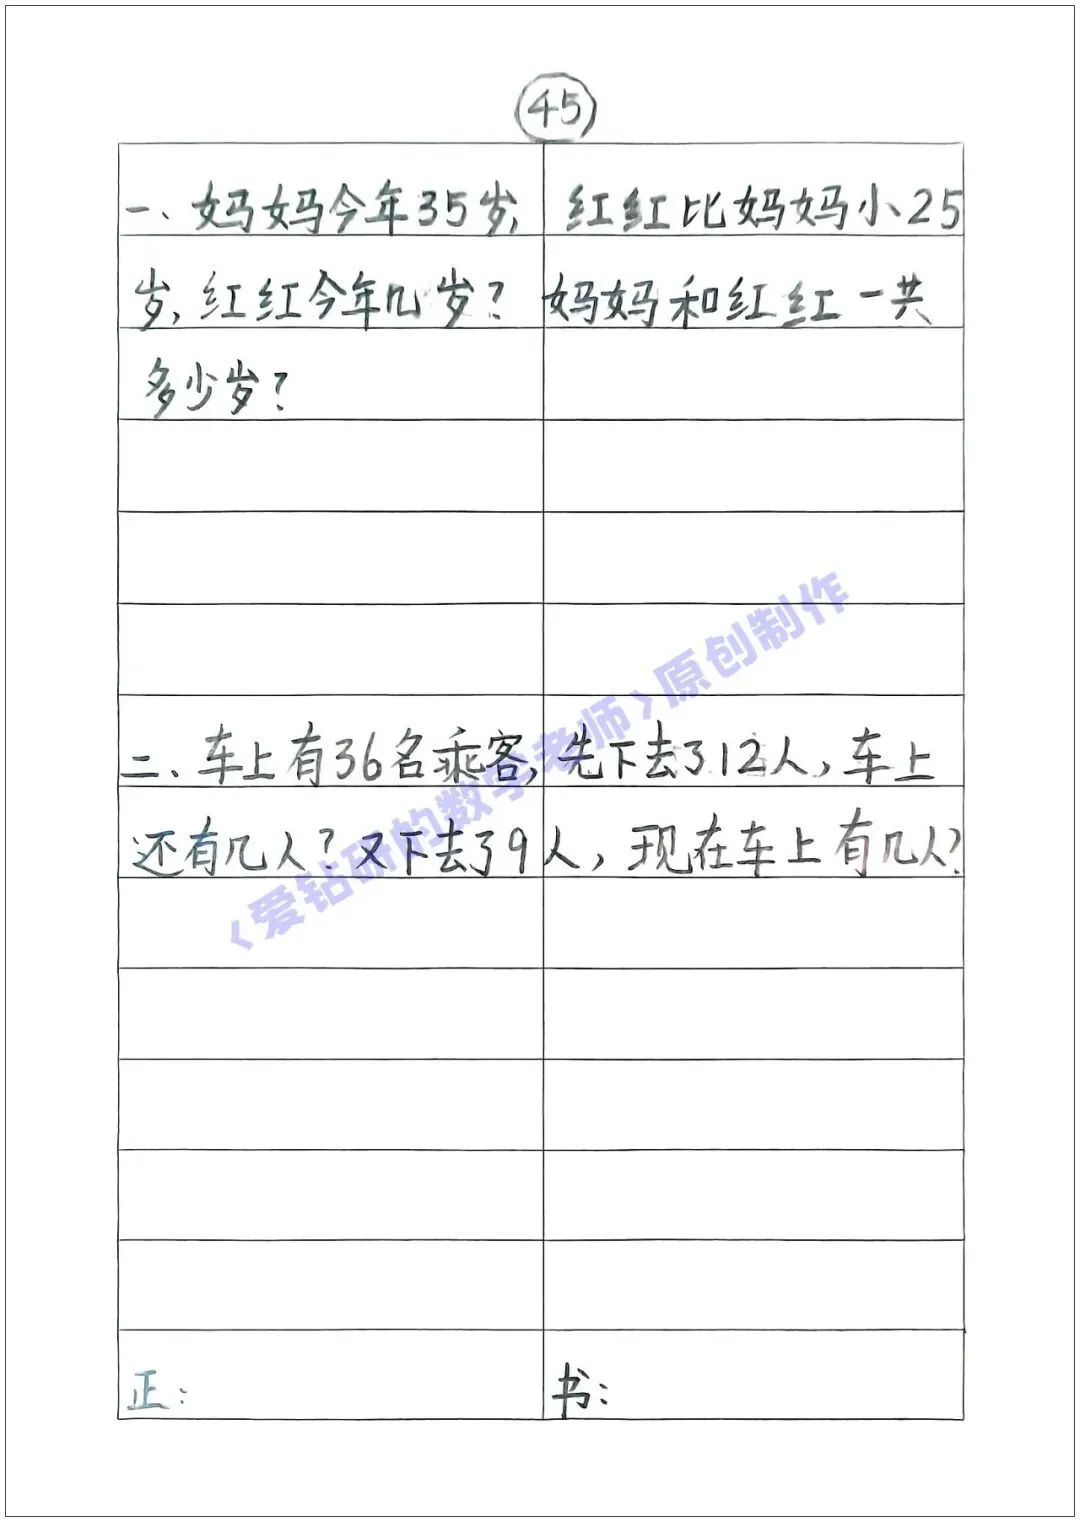 45
一、妈妈今年35岁,红红比妈妈小25
岁,红红今年几岁?妈妈和红红一共
多少岁?
二、车上有36名乘客,先下去了12人,车上
还有几人?又下去了9人,现在车上有几人?
正: 书:
《爱钻研的数学老师》原创制作